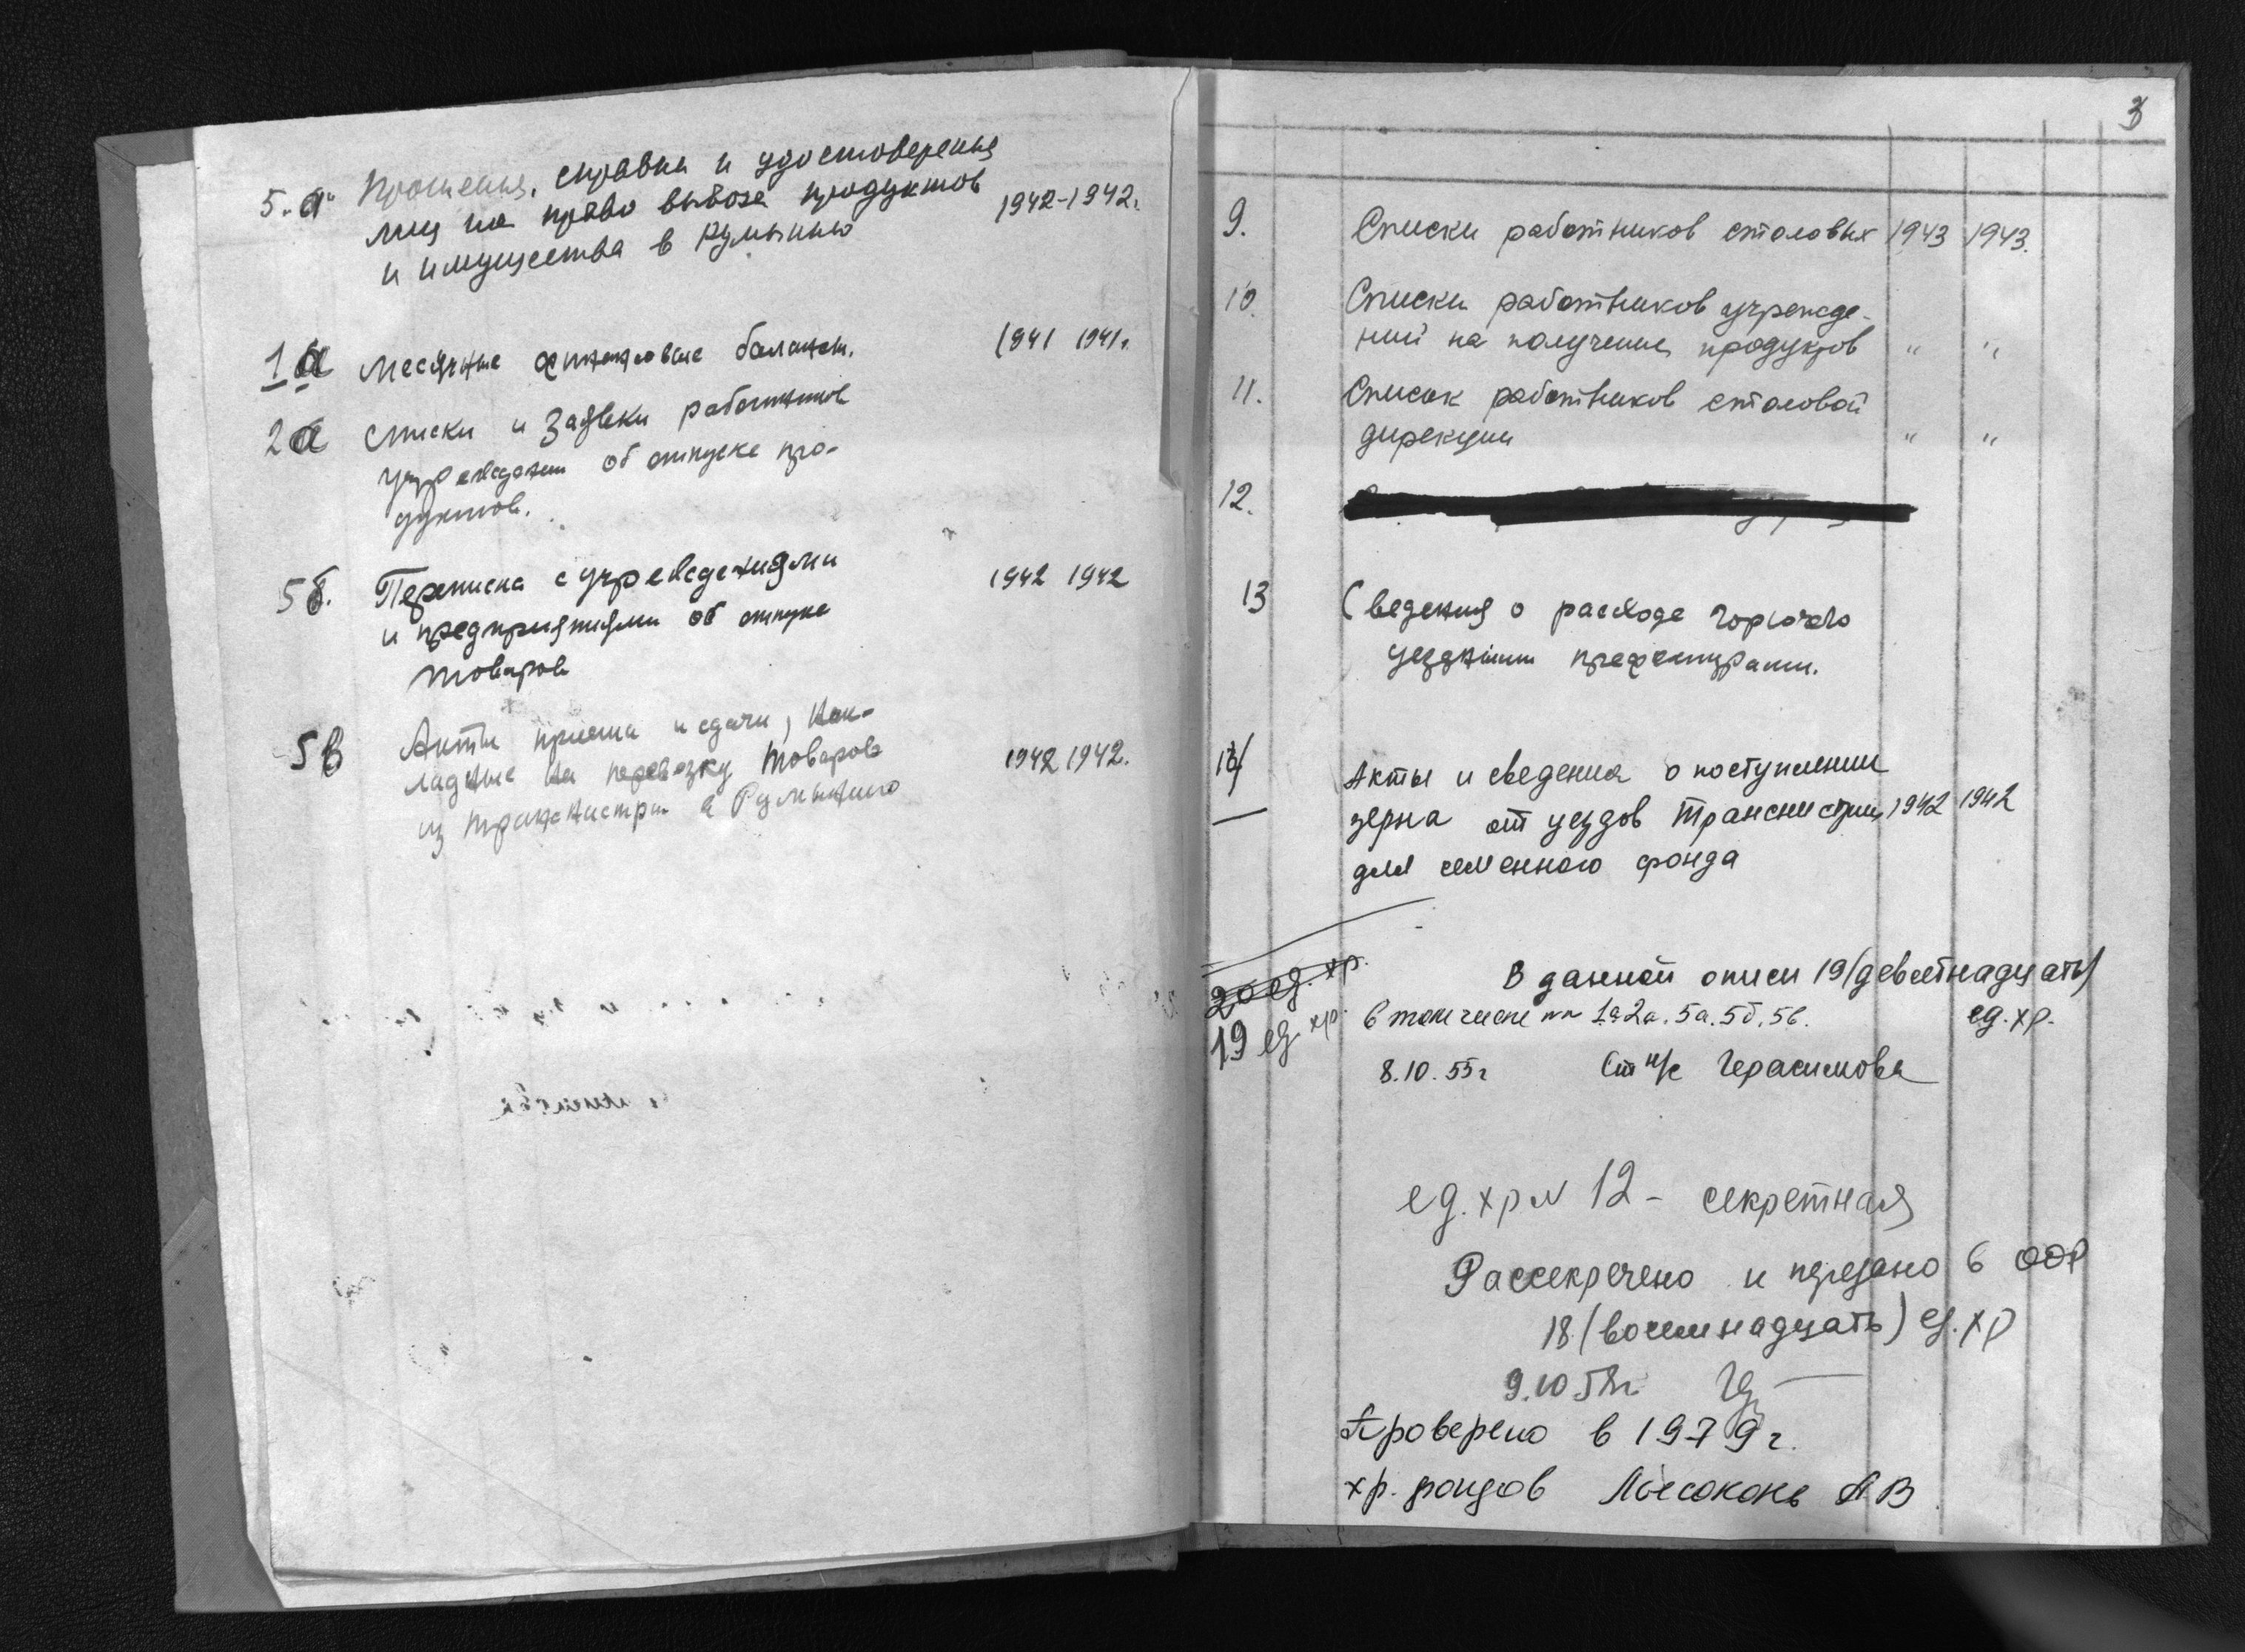 5.а Прошения, справки и удостоверения
лиц на право вывоза продуктов 1942-1942.
и имущества в Румынию
1а Месячные финансовые балансы. 1941 1941г.
2а Списки и заявки работников
учреждений об отпуске про-
дуктов.
5б. Переписка с учреждениями 1942 1942
и предприятиями об отпуске
товаров
5в Акты приема и сдачи, нак-
ладные на перевозку товаров 1942 1942.
из Транснистрии в Румынию
3
9. Списки работников столовых 1943 1943.
10. Списки работников учрежде-
ний на получение продуктов " "
11. Список работников столовой
дирекции " "
12.
13 Сведения о расходе горючего
уездными префектурами.
14 Акты и сведения о поступлении
зерна от уездов Транснистрии 1942 1942
для семенного фонда
20 ед. хр.
19 ед. хр.
В данной описи 19 (девятнадцать)
в том числе 1а 2а. 5а. 5б. 5в. ед. хр.
8.10.55г Ст н/с Герасимова
ед. хр N 12 - секретная
Рассекречено и передано в ООФ
18 (восемнадцать) ед. хр
Проверено в 1979 г.
хр. фондов Лысоконь А В